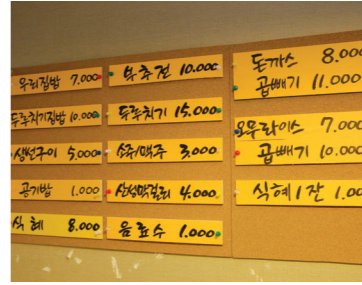 우리집밥 7.000
두루치기집밥 10.000
생선구이 5.000
공기밥 1.000
식혜 8.000
부추전 10.000
두루치기 15.000
소주/맥주 3.000
산성막걸리 4.000
음료수 1.000
돈까스 8.000
곱빼기 11.000
오무라이스 7.000
곱빼기 10.000
식혜 1잔 1.00